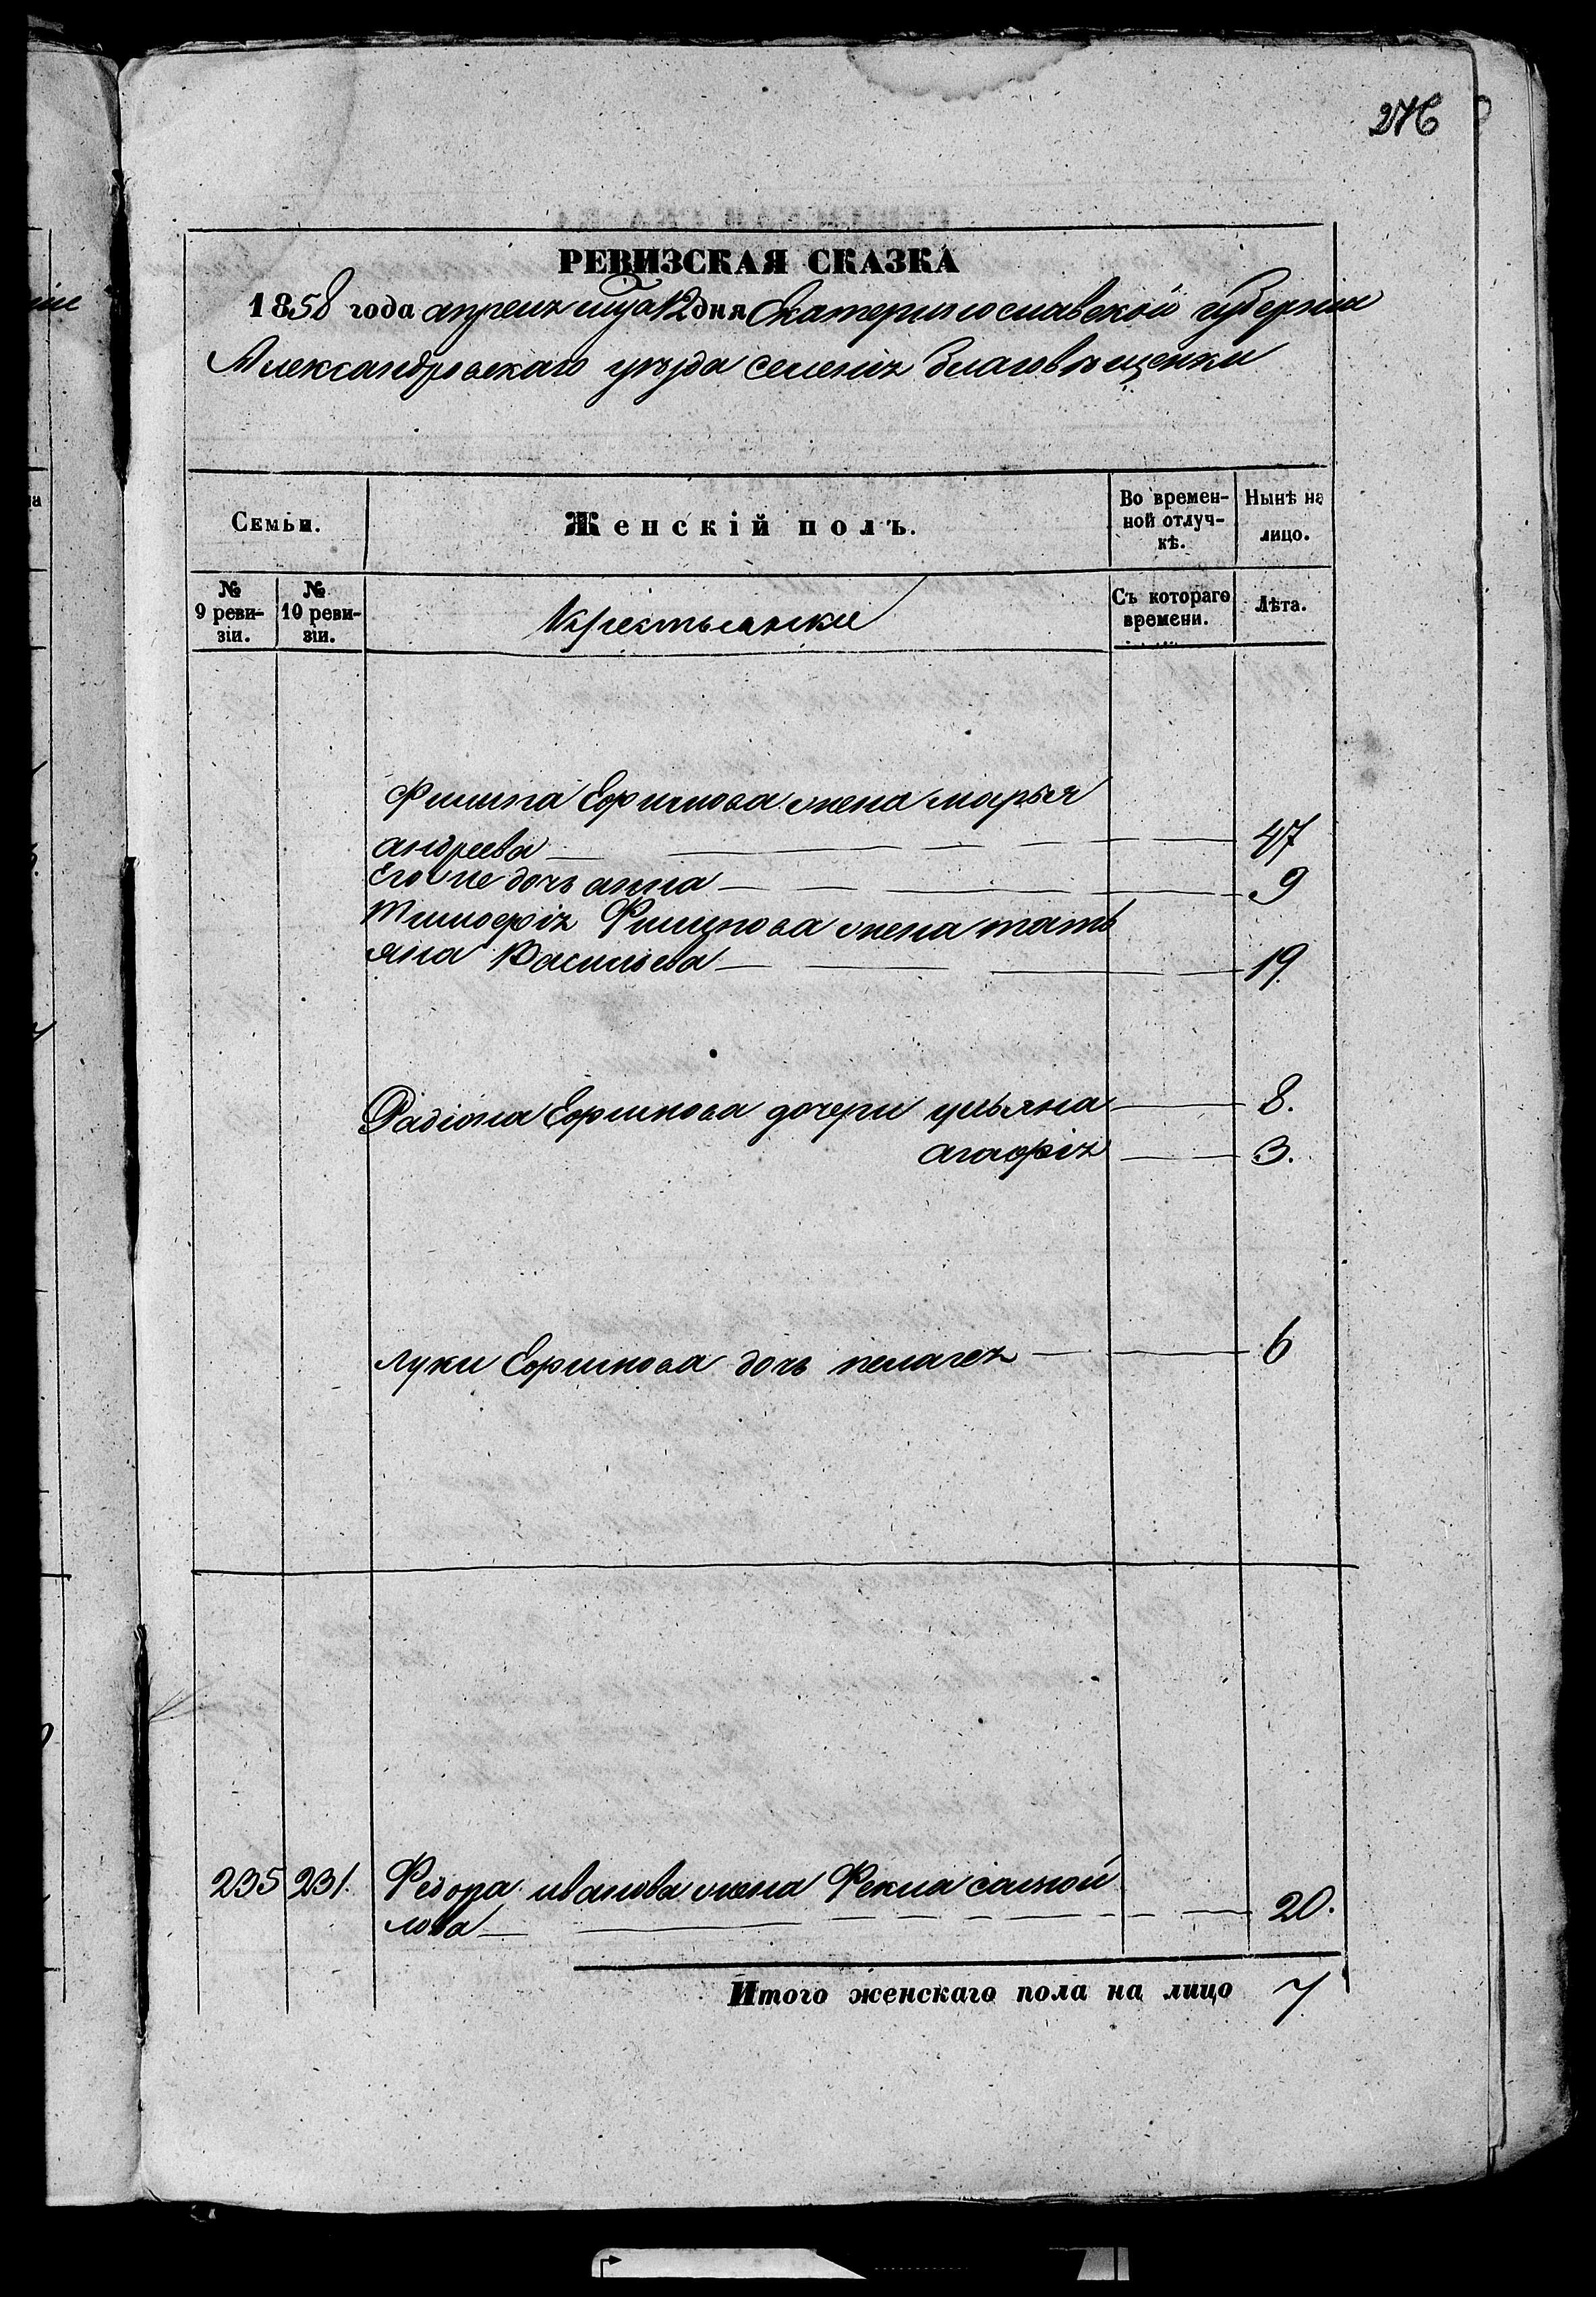 276
РЕВИЗСКАЯ СКАЗКА
1858 года апреля мца 12 дня Екатеринославской губерніи
Александровскаго уѣзда селенія благовѣщенки
Семьи.
Женскій полъ.
Во времен-
ной отлуч-
кѣ.
Нынѣ на
лицо.
№
9 реви-
зіи.
№
10 реви-
зіи.
Крестьянки
Съ котораго
времени.
Лѣта.
Филипа Ефимова жена марья
андреева 47
Его же дочь анна 9
Тимофея Филипова жена тать
яна Васильева 19.
Радіона Ефимова дочери ульяна 8.
агафія 3.
луки Ефимова дочь пелагея 6
235 231. Федора иванова жена Фекла самой
лова 20.
Итого женскаго пола на лицо 7